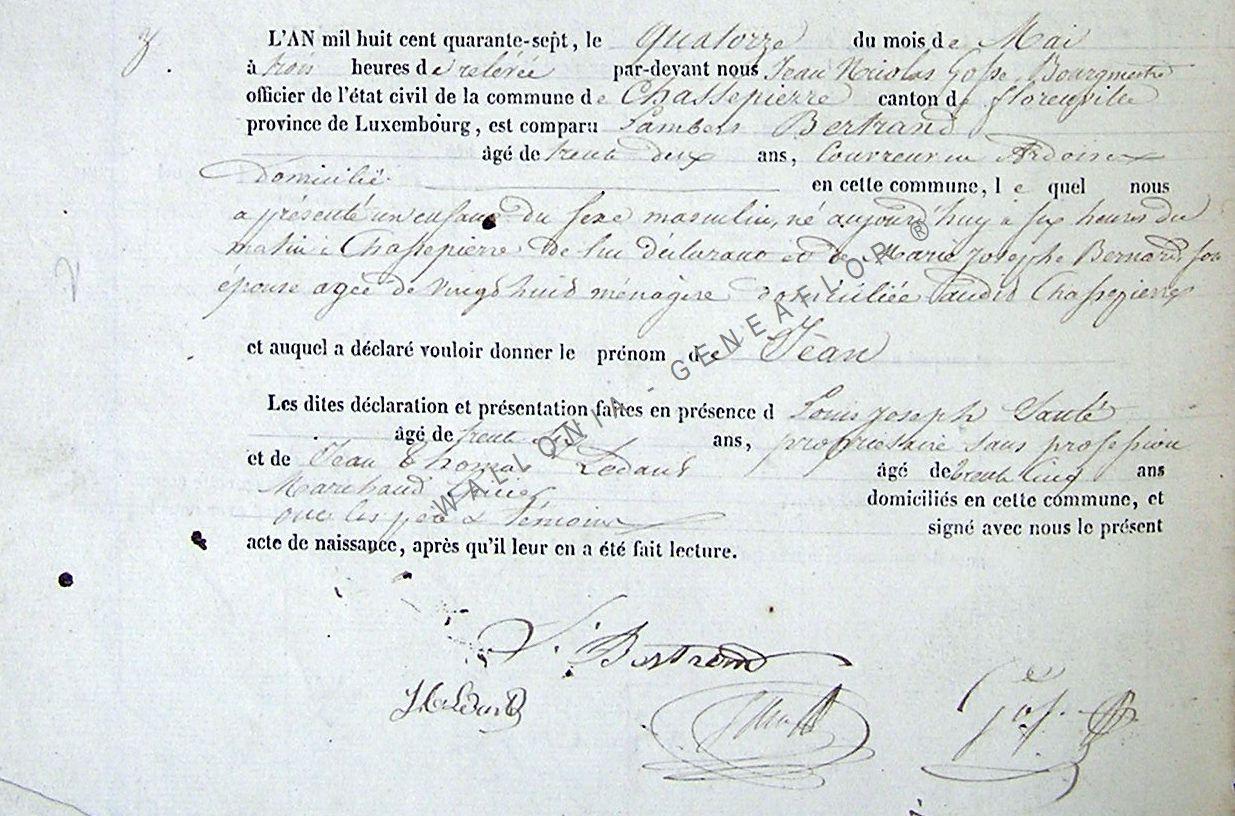 L'AN mil huit cent quarante-sept, le quatorze du mois de Mai
à trois heures de relevée par-devant nous Jean Nicolas Gosse, Bourgmestre
officier de l'état civil de la commune de Chassepierre canton de florenville
province de Luxembourg, est comparu Lambert Bertrand
âgé de trente deux ans, Couvreur en Ardoises
Domicilié en cette commune, le quel nous
a présenté un enfant du sexe masculin, né aujourd'huy à six heures du
matin à Chassepierre de lui déclarant et de Marie Josephe Bernard son
épouse agée de vingt huit ménagère domiciliée audit Chassepierre
et auquel a déclaré vouloir donner le prénom de Jean
Les dites déclaration et présentation faites en présence d Louis Joseph
âgé de trente ans, propriétaire sans profession
et de Jean Thomas Ledant âgé de trente cinq ans
Marchand domiciliés en cette commune, et
que les père & témoins signé avec nous le présent
acte de naissance, après qu'il leur en a été fait lecture.
L. Bertrand
WALLONIA - GENEAFLOR ®